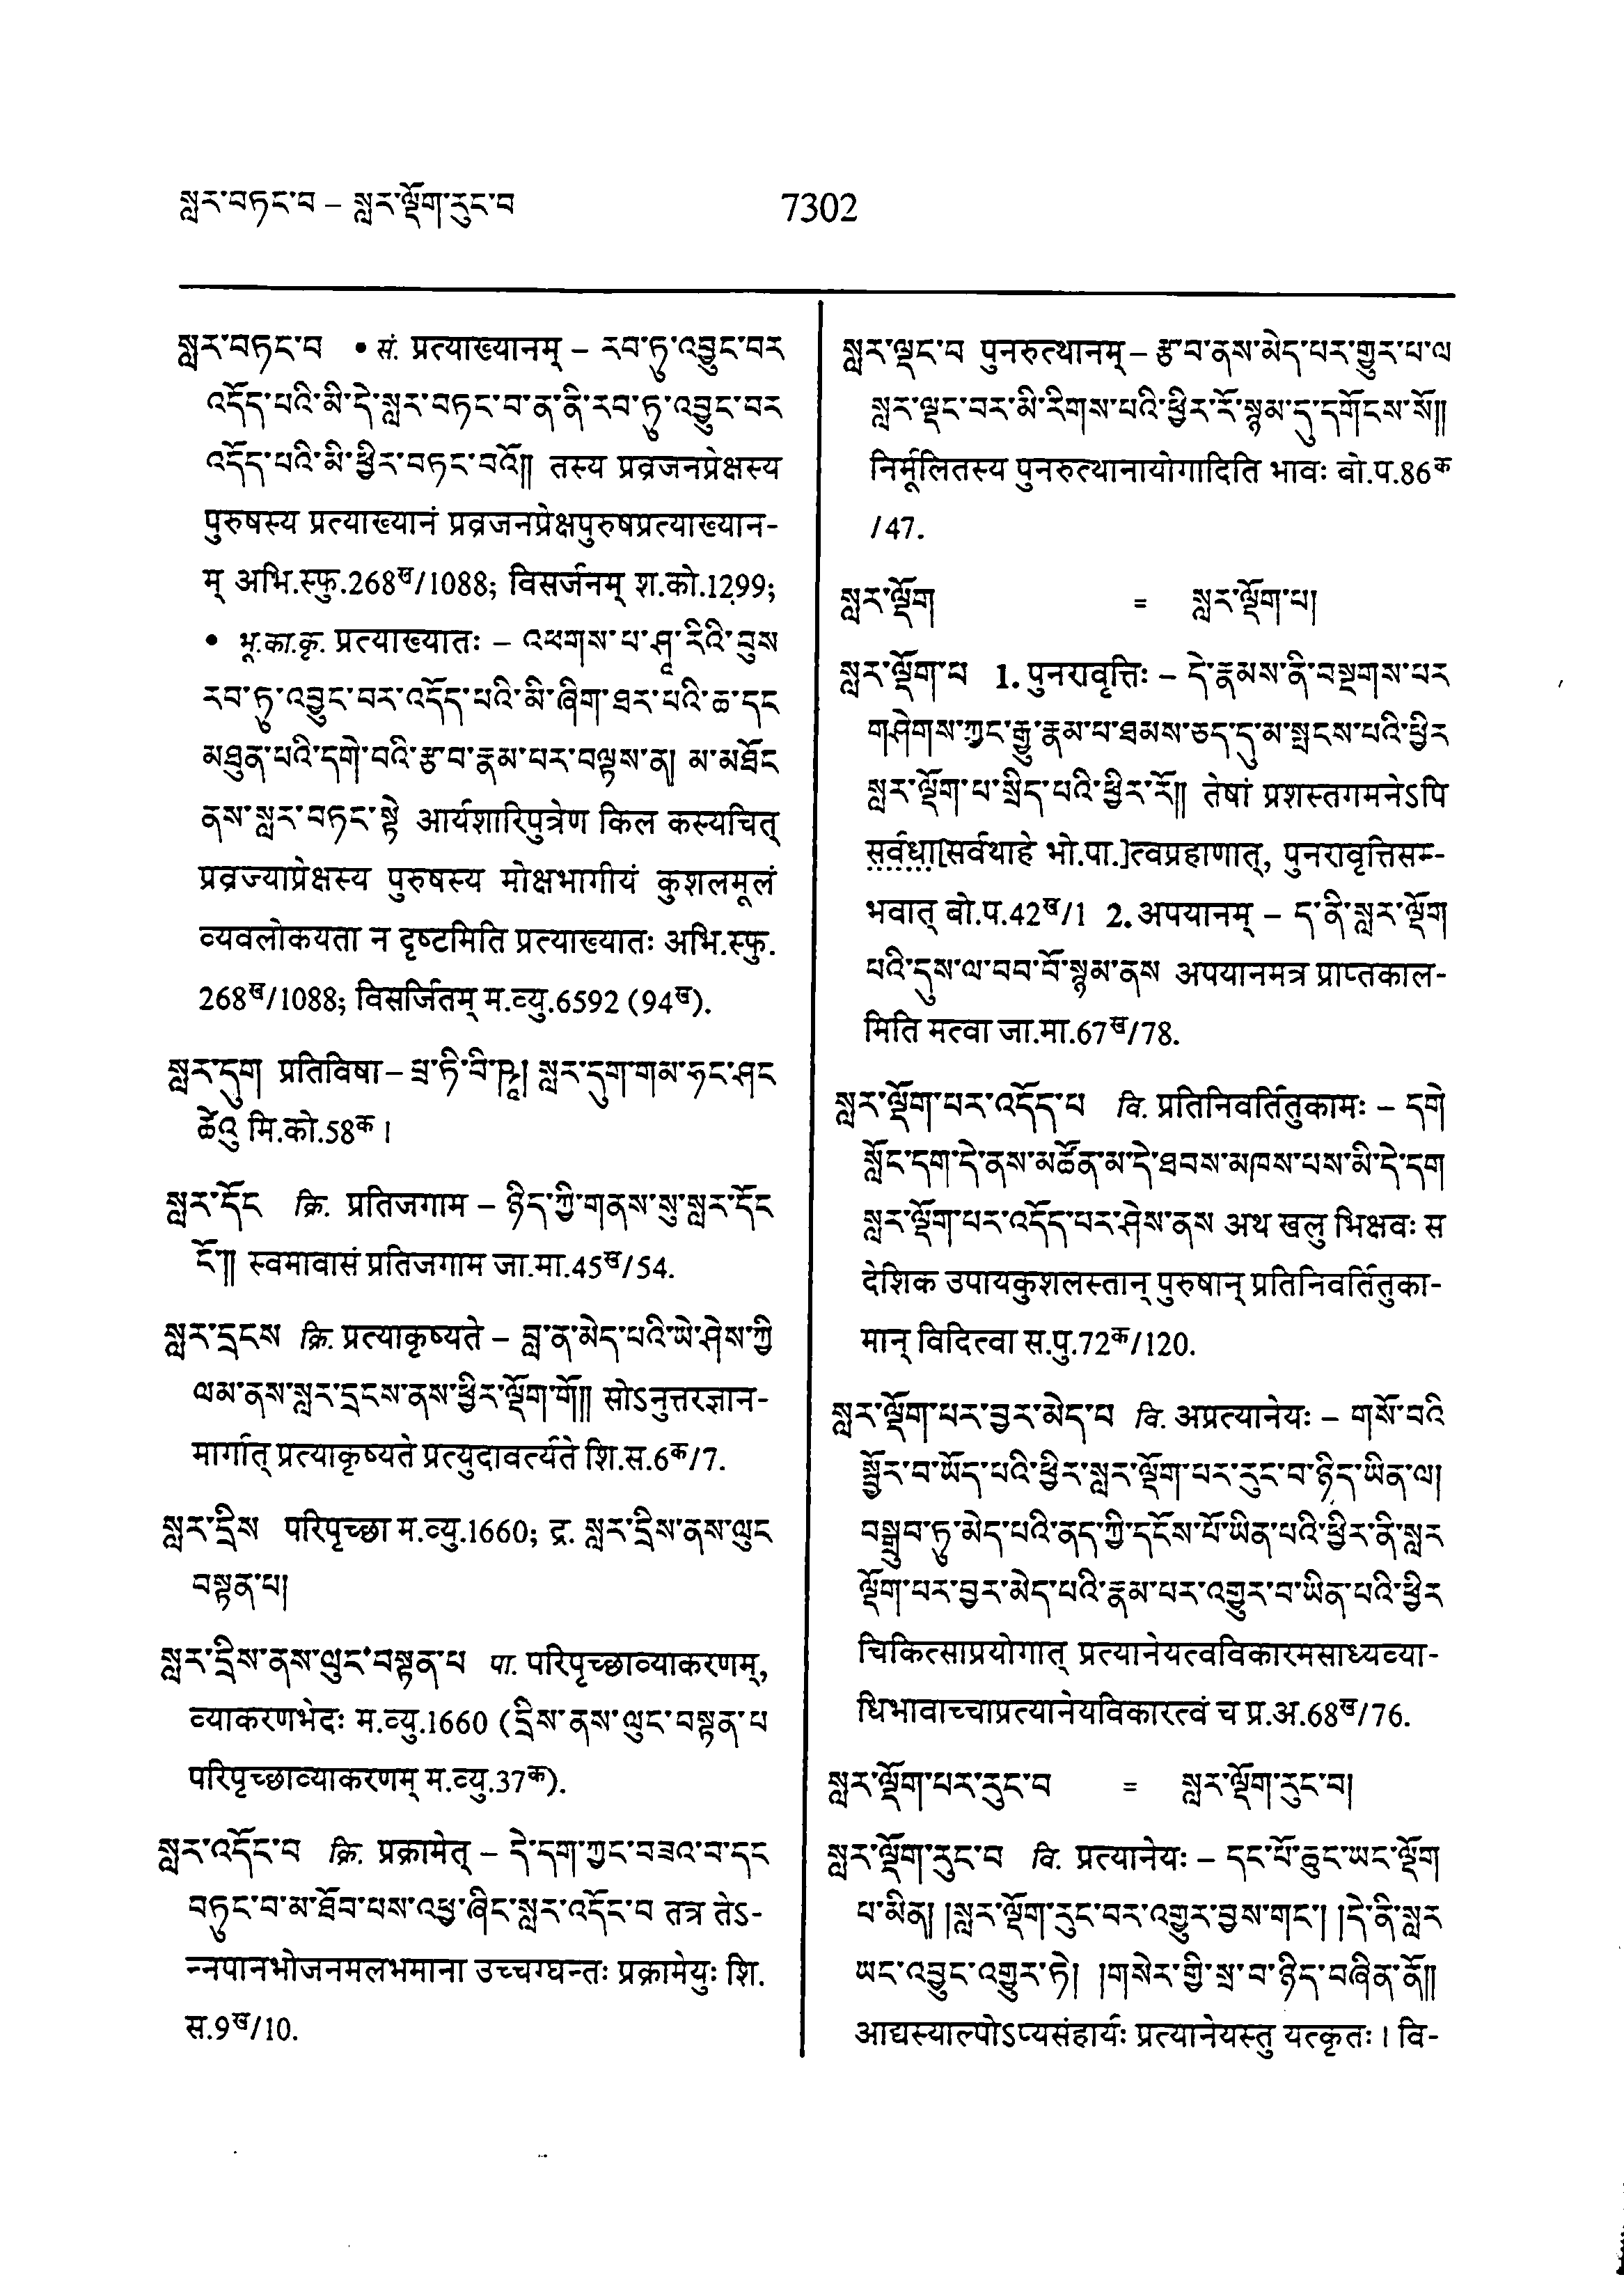 སླར་བཏང་བ – སླར་ལྡོག་རུང་བ
7302
སླར་བཏང་བ • सं. प्रत्याख्यानम् – རབ་ཏུ་འབྱུང་བར
འདོད་པའི་མི་དེ་སླར་བཏང་བ་ན་ནི་རབ་ཏུ་འབྱུང་བར
འདོད་པའི་མི་ཕྱིར་བཏང་བའོ།། तस्य प्रव्रजनप्रेक्षस्य
पुरुषस्य प्रत्याख्यानं प्रव्रजनप्रेक्षपुरुषप्रत्याख्यान-
म् अभि.स्फु.268ख/1088; विसर्जनम् श.को.1299;
• भू.का.कृ. प्रत्याख्यातः – འཕགས་པ་ཤཱ་རིའི་བུས
རབ་ཏུ་འབྱུང་བར་འདོད་པའི་མི་ཞིག་ཐར་པའི་ཆ་དང
མཐུན་པའི་དགེ་བའི་རྩ་བ་རྣམ་པར་བལྟས་ན། མ་མཐོང
ནས་སླར་བཏང་སྟེ आर्यशारिपुत्रेण किल कस्यचित्
प्रव्रज्याप्रेक्षस्य पुरुषस्य मोक्षभागीयं कुशलमूलं
व्यवलोकयता न दृष्टमिति प्रत्याख्यातः अभि.स्फु.
268ख/1088; विसर्जितम् म.व्यु.6592 (94ख).
སླར་དུག प्रतिविषा – པྲ་ཏི་བི་ཥཱ། སླར་དུག་གམ་ཧང་ཤང
ཚེའུ मि.को.58क ।
སླར་དོང क्रि. प्रतिजगाम – ཉིད་ཀྱི་གནས་སུ་སླར་དོང
ངོ་།། स्वमावासं प्रतिजगाम जा.मा.45ख/54.
སླར་དྲངས क्रि. प्रत्याकृष्यते – བླ་ན་མེད་པའི་ཡེ་ཤེས་ཀྱི
ལམ་ནས་སླར་དྲངས་ནས་ཕྱིར་ལྡོག་གོ།། सोऽनुत्तरज्ञान-
मार्गात् प्रत्याकृष्यते प्रत्युदावर्त्यते शि.स.6क/7.
སླར་དྲིས परिपृच्छा म.व्यु.1660; द्र. སླར་དྲིས་ནས་ལུང
བསྟན་པ།
སླར་དྲིས་ནས་ལུང་བསྟན་པ पा. परिपृच्छाव्याकरणम्,
व्याकरणभेदः म.व्यु.1660 (དྲིས་ནས་ལུང་བསྟན་པ
परिपृच्छाव्याकरणम् म.व्यु.37क).
སླར་འདོང་བ क्रि. प्रक्रामेत् – དེ་དག་ཀྱང་བཟའ་བ་དང
བཏུང་བ་མ་ཐོབ་པས་འཕྱ་ཞིང་སླར་འདོང་བ तत्र तेऽ-
न्नपानभोजनमलभमाना उच्चग्घन्तः प्रक्रामेयुः शि.
स.9ख/10.
སླར་ལྡང་བ पुनरुत्थानम् – རྩ་བ་ནས་མེད་པར་གྱུར་པ་ལ
སླར་ལྡང་བར་མི་རིགས་པའི་ཕྱིར་རོ་སྙམ་དུ་དགོངས་སོ།།
निर्मूलितस्य पुनरुत्थानायोगादिति भावः बो.प.86क
/47.
སླར་ལྡོག = སླར་ལྡོག་པ།
སླར་ལྡོག་པ 1. पुनरावृत्तिः – དེ་རྣམས་ནི་བསྔགས་པར
གཤེགས་ཀྱང་རྒྱུ་རྣམ་པ་ཐམས་ཅད་དུ་མ་སྤངས་པའི་ཕྱིར
སླར་ལྡོག་པ་སྲིད་པའི་ཕྱིར་རོ།། तेषां प्रशस्तगमनेऽपि
सर्वधा[सर्वथाहे भो.पा.]त्वप्रहाणात्, पुनरावृत्तिसम्-
भवात् बो.प.42ख/1 2. अपयानम् – ད་ནི་སླར་ལྡོག
པའི་དུས་ལ་བབ་བོ་སྙམ་ནས अपयानमत्र प्राप्तकाल-
मिति मत्वा जा.मा.67ख/78.
སླར་ལྡོག་པར་འདོད་པ वि. प्रतिनिवर्तितुकामः – དགེ
སློང་དག་དེ་ནས་མཚོན་མ་དེ་ཐབས་མཁས་པས་མི་དེ་དག
སླར་ལྡོག་པར་འདོད་པར་ཤེས་ནས अथ खलु भिक्षवः स
देशिक उपायकुशलस्तान् पुरुषान् प्रतिनिवर्तितुका-
मान् विदित्वा स.पु.72क/120.
སླར་ལྡོག་པར་བྱར་མེད་པ वि. अप्रत्यानेयः – གསོ་བའི
སྦྱོར་བ་ཡོད་པའི་ཕྱིར་སླར་ལྡོག་པར་རུང་བ་ཉིད་ཡིན་ལ།
བསྒྲུབ་ཏུ་མེད་པའི་ནད་ཀྱི་དངོས་པོ་ཡིན་པའི་ཕྱིར་ནི་སླར
ལྡོག་པར་བྱར་མེད་པའི་རྣམ་པར་འགྱུར་བ་ཡིན་པའི་ཕྱིར
चिकित्साप्रयोगात् प्रत्यानेयत्वविकारमसाध्यव्या-
धिभावाच्चाप्रत्यानेयविकारत्वं च प्र.अ.68ख/76.
སླར་ལྡོག་པར་རུང་བ = སླར་ལྡོག་རུང་བ།
སླར་ལྡོག་རུང་བ वि. प्रत्यानेयः – དང་པོ་ཆུང་ཡང་ལྡོག
པ་མིན། །སླར་ལྡོག་རུང་བར་འགྱུར་བྱས་གང་། །དེ་ནི་སླར
ཡང་འབྱུང་འགྱུར་ཏེ། །གསེར་གྱི་སྲ་བ་ཉིད་བཞིན་ནོ།།
आद्यस्याल्पोऽप्यसंहार्यः प्रत्यानेयस्तु यत्कृतः । वि-